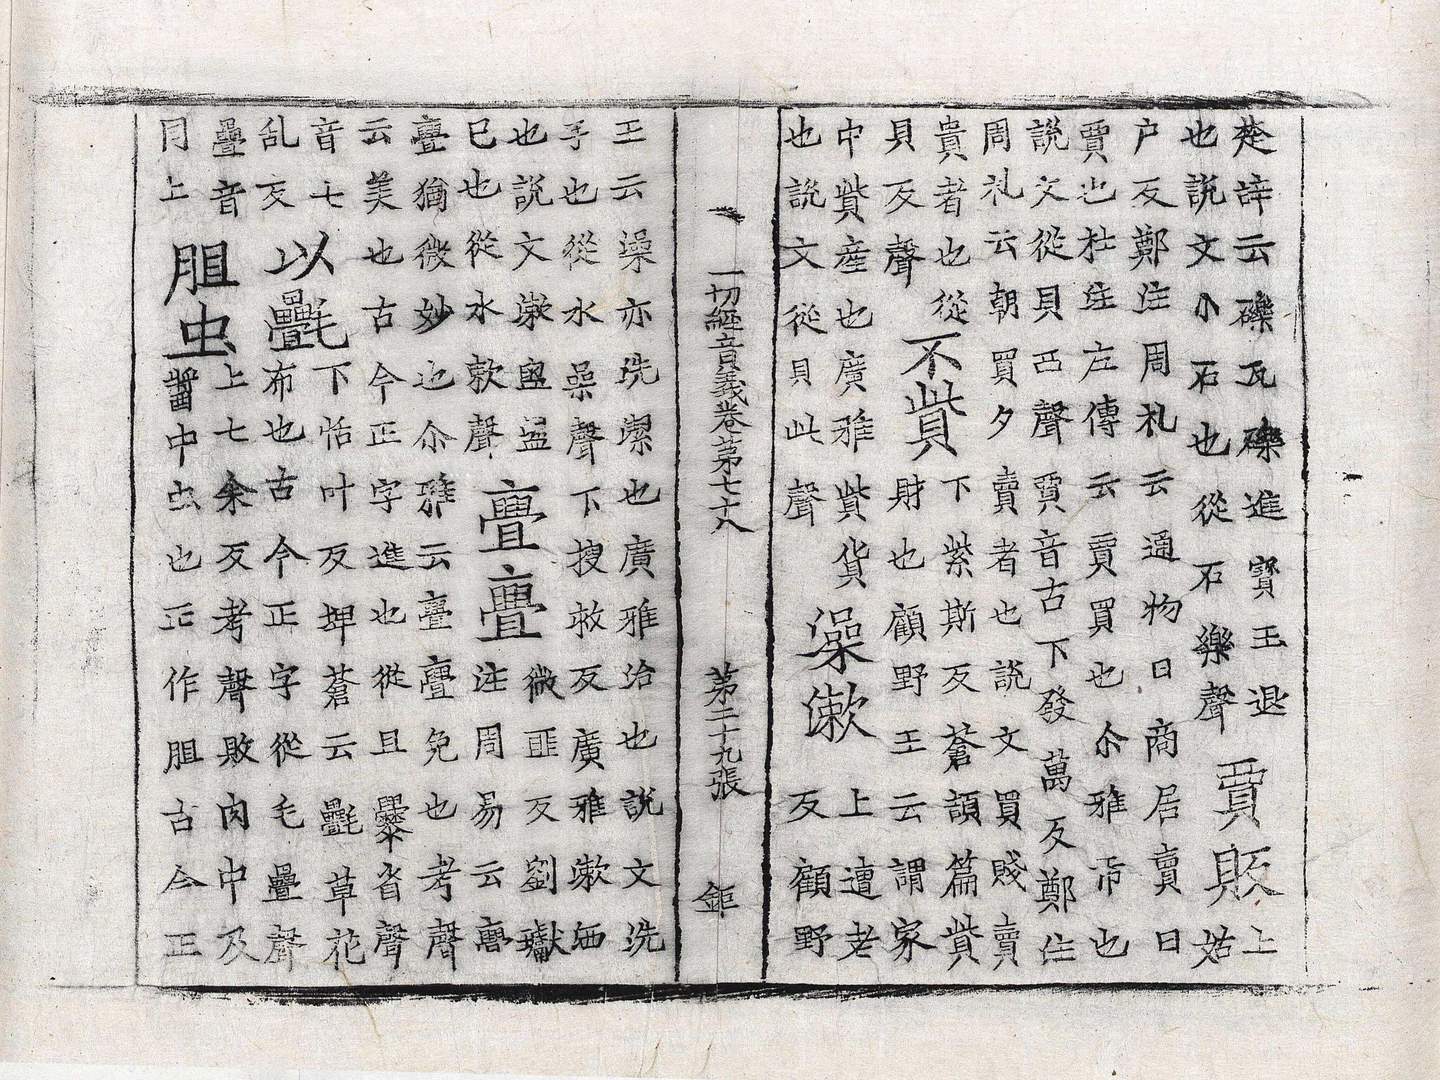 楚辞云礫瓦礫進寳玉退
也說文小石也從石樂聲
賈販
上
姑
户反鄭注周礼云通物曰商居賣曰
賈也杜注左傳云賈買也尒雅帀也
說文從貝襾聲賈音古下發萬反鄭注
周礼云朝買夕賣者也說文買賤賣
貴者也從
貝反聲
不貲
下紫斯反蒼頡篇貲
財也顧野王云謂家
中貲産也廣雅貲貨
也說文從貝此聲
澡漱
上遭老
反顧野
一切經音義卷苐七十八
苐二十九張
鉅
王云澡亦洗㓗也廣雅治也說文洗
手也從水喿聲下搜救反廣雅漱洒
也說文漱盥盪
巳也從水欶聲
亹亹
微匪反劉瓛
注周易云亹
亹猶微妙也尒雅云亹亹免也考聲
云美也古今正字進也從且釁省聲
音七
乱反
以㲲
下恬叶反埤蒼云㲲草花
布也古今正字從毛疊聲
疊音
同上
胆虫
上七余反考聲敗肉中及
醬中虫也正作胆古今正